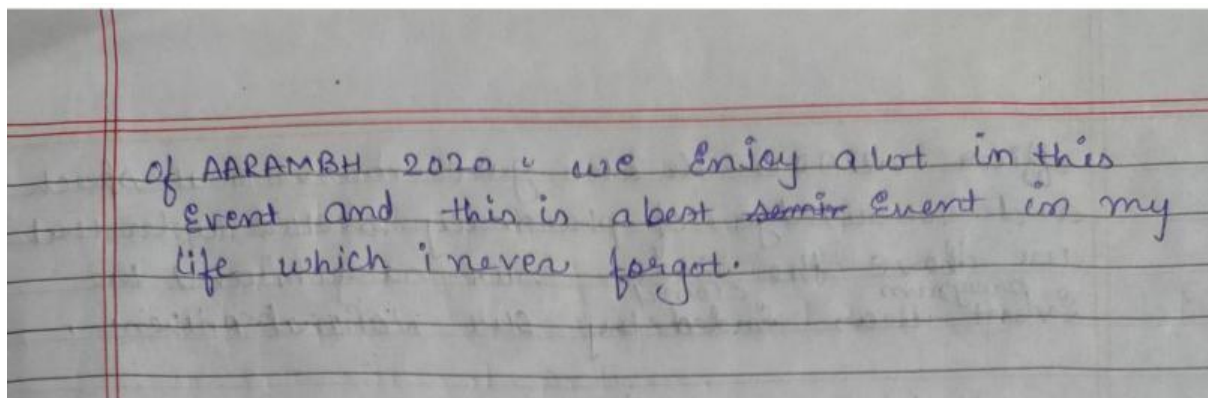 of AARAMBH 2020. we Enjoy alot in this
Event and this is a best Event in my
life which i never forgot.